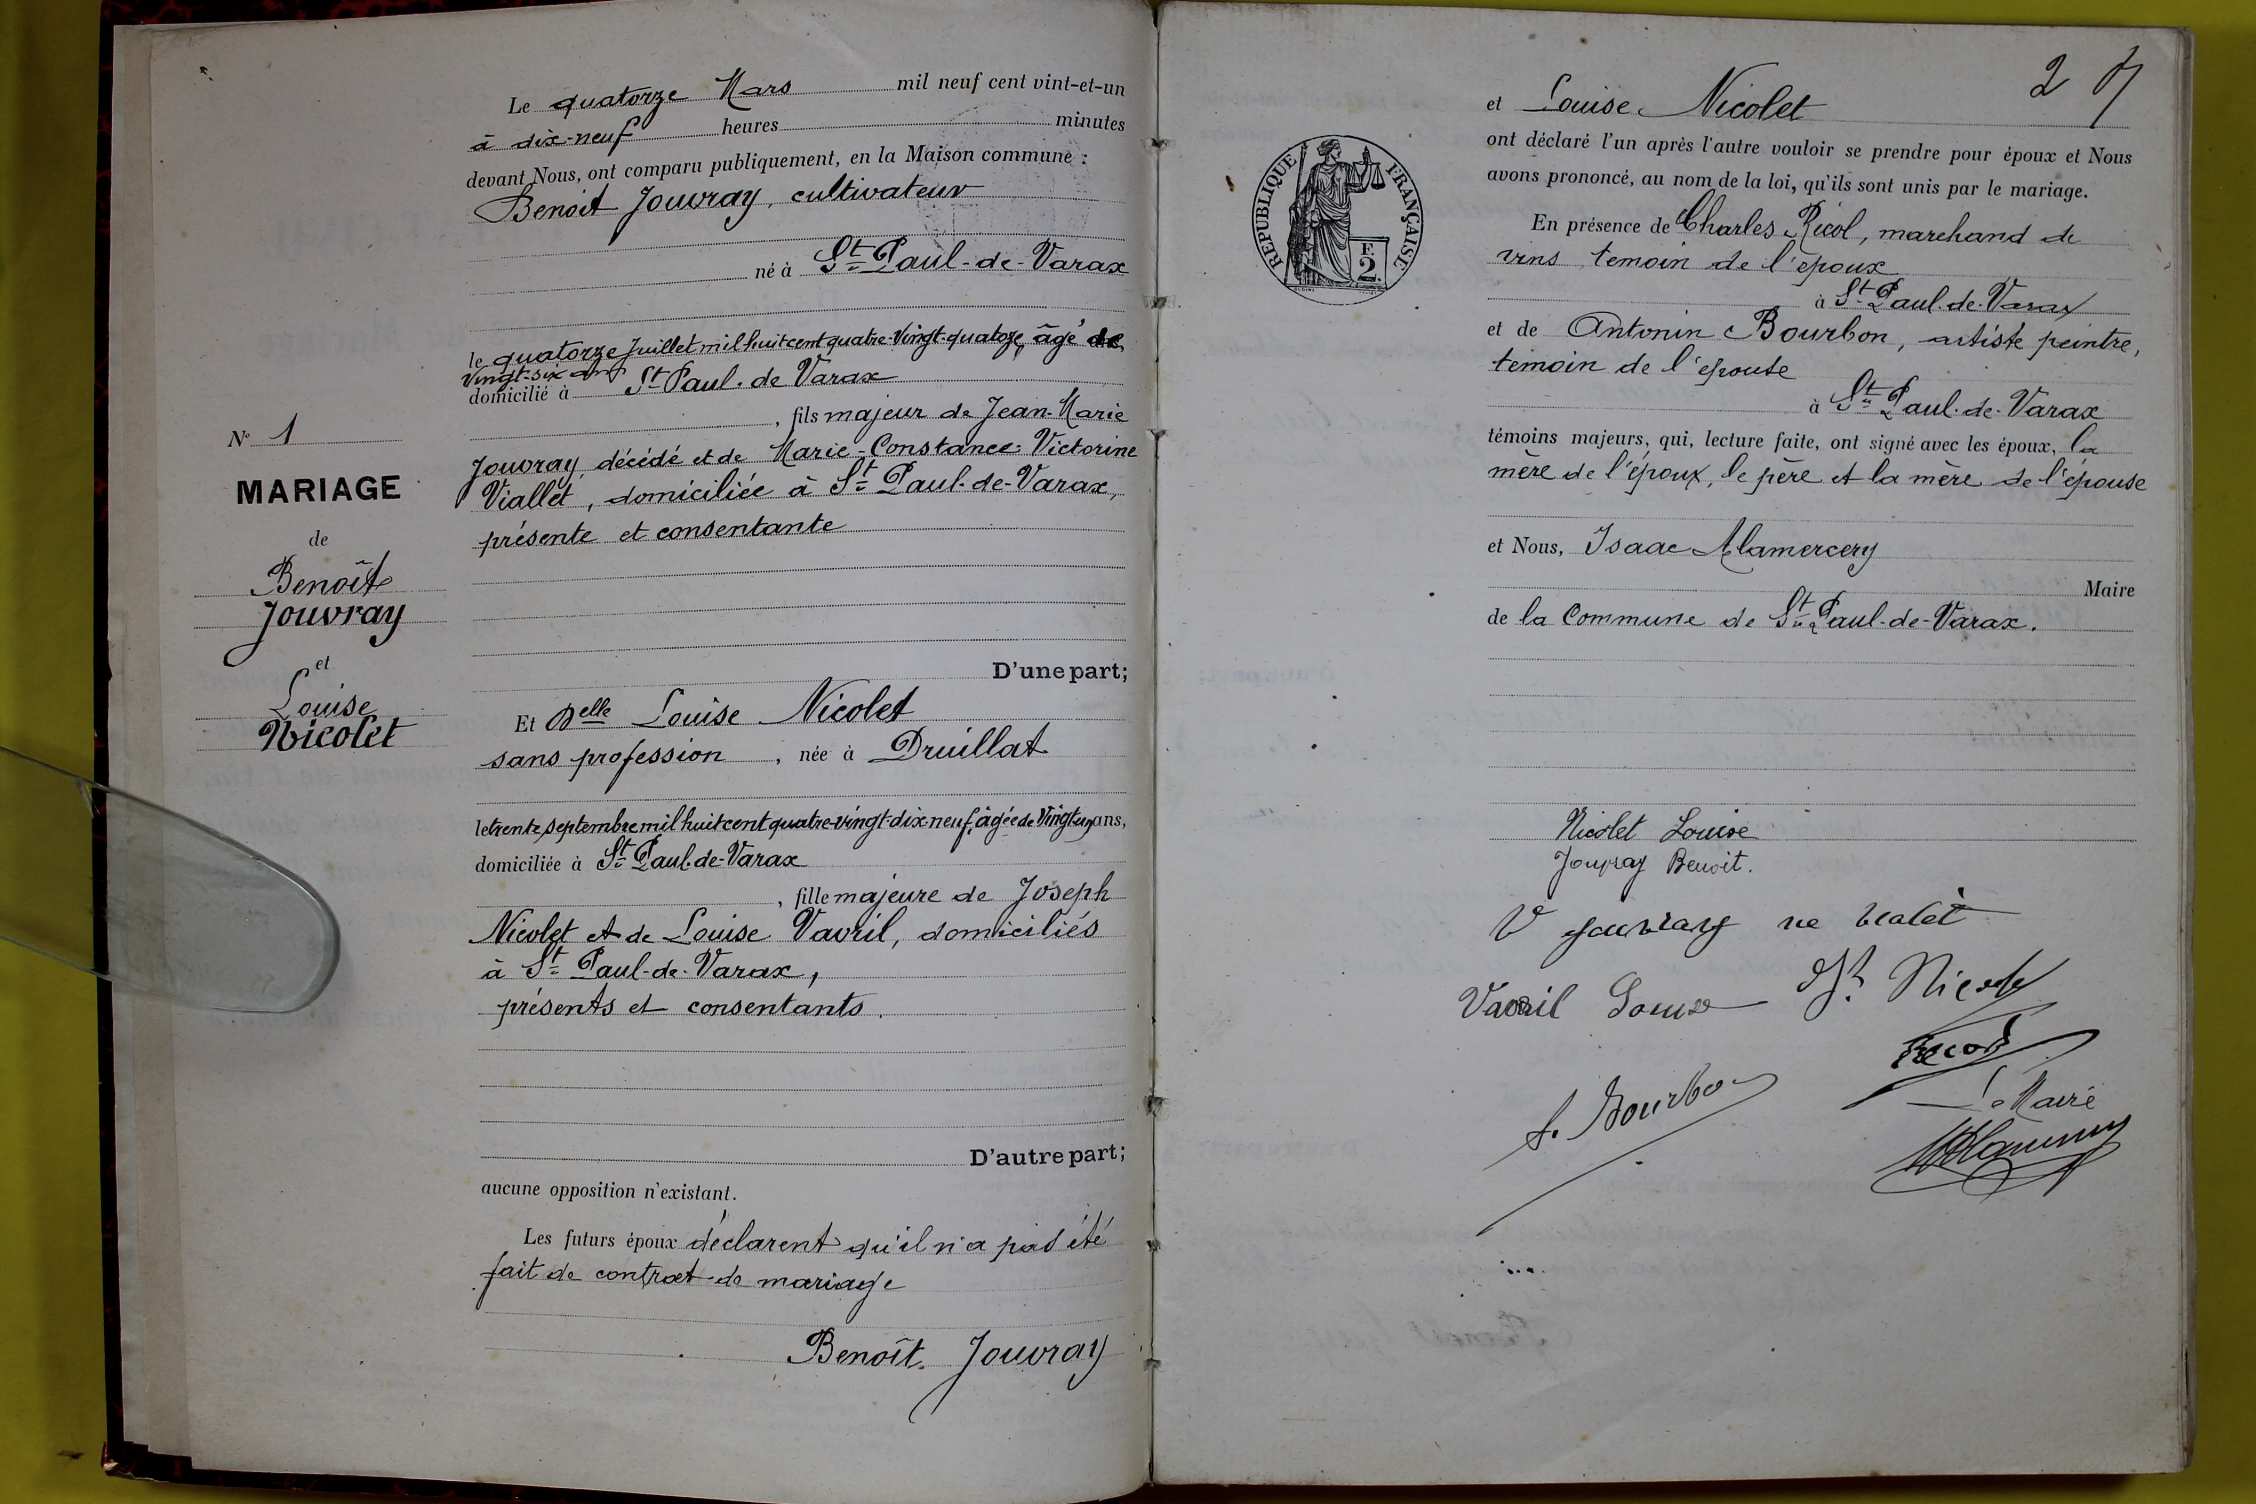 Le quatorze Mars mil neuf cent vint-et-un
à dix-neuf heures minutes
devant Nous, ont comparu publiquement, en la Maison commune :
Benoit Jouvray, cultivateur
né à St Paul-de-Varax
le quatorze Juillet mil huit cent quatre-Vingt-quatoze, âgé de
Vingt-six ans
domicilié à St Paul-de Varax
, fils majeur de Jean-Marie
Jouvray, décédé et de Marie-Constance-Victorine
Viallet, domiciliée à St Paul-de-Varax,
présente et consentante
N° 1
MARIAGE
de
Benoît
Jouvray
et
Louise
Nicolet
D'une part;
Et Delle Louise Nicolet
sans profession , née à Druillat
le trente septembre mil huit cent quatre-vingt-dix neuf, âgée de Vingt un ans,
domiciliée à St Paul-de-Varax
, fille majeure de Joseph
Nicolet et de Louise Vavril, domiciliés
à St Paul-de-Varax,
présents et consentants.
D'autre part;
aucune opposition n'existant.
Les futurs époux déclarent qu'il n'a pas été
fait de contrat de mariage
Benoît Jouvray
2
RÉPUBLIQUE FRANÇAISE
F.
2.
et Louise Nicolet
ont déclaré l'un après l'autre vouloir se prendre pour époux et Nous
avons prononcé, au nom de la loi, qu'ils sont unis par le mariage.
En présence de Charles Ricol, marchand de
vins temoin de l'epoux
à St Paul-de-Varax
et de Antonin Bourbon, artiste peintre,
temoin de l'épouse
à St Paul-de-Varax
témoins majeurs, qui, lecture faite, ont signé avec les époux, la
mère de l'époux, le père et la mère de l'épouse
et Nous, Isaac Alamercery
Maire
de la Commune de St Paul-de-Varax.
Nicolet Louise
Jouvray Benoit.
V Jouvray né vialet
Vavril Louise Jh Nicolet
Ricol
A. Bourbon
Le Maire